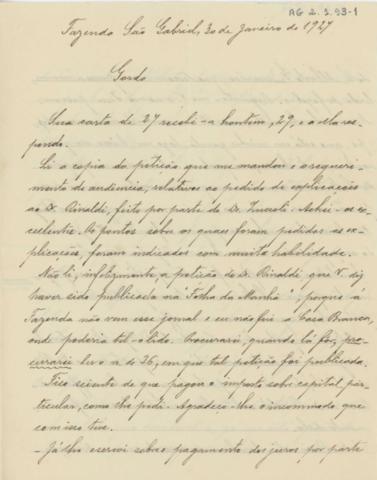 AG 2.3.93-1
Fazenda São Gabriel, 30 de Janeiro de 1927
Gordo
Sua carta de 27 recebi-a hontem, 29, e a ella res-
pondo.
Li a copia da petição que me mandou e o requeri-
mento de audiencia, relativos ao pedido de explicações
ao Dr. Rivaldi, feito por parte do Dr. Achei-os ex-
cellentes. Os pontos sobre os quaes foram pedidas as ex-
plicações, foram indicados com muita habilidade.
Não li, infelizmente, a petição do Dr. Rivaldi que V. diz
haver sido publicada na "Folha da Manhã", porque a
Fazenda não vem esse jornal e eu não fui a Casa Branca,
onde poderia tel-o lido. Procurarei, quando lá for, pro-
curarei ler o n. de 26, em que tal petição foi publicada.
Fico sciente de que pagou o imposto sobre capital par-
ticular, como lhe pedi. Agradeço-lhe o incommodo que
com isso teve.
- Já lhe escrevi sobre pagamento dos juros por parte